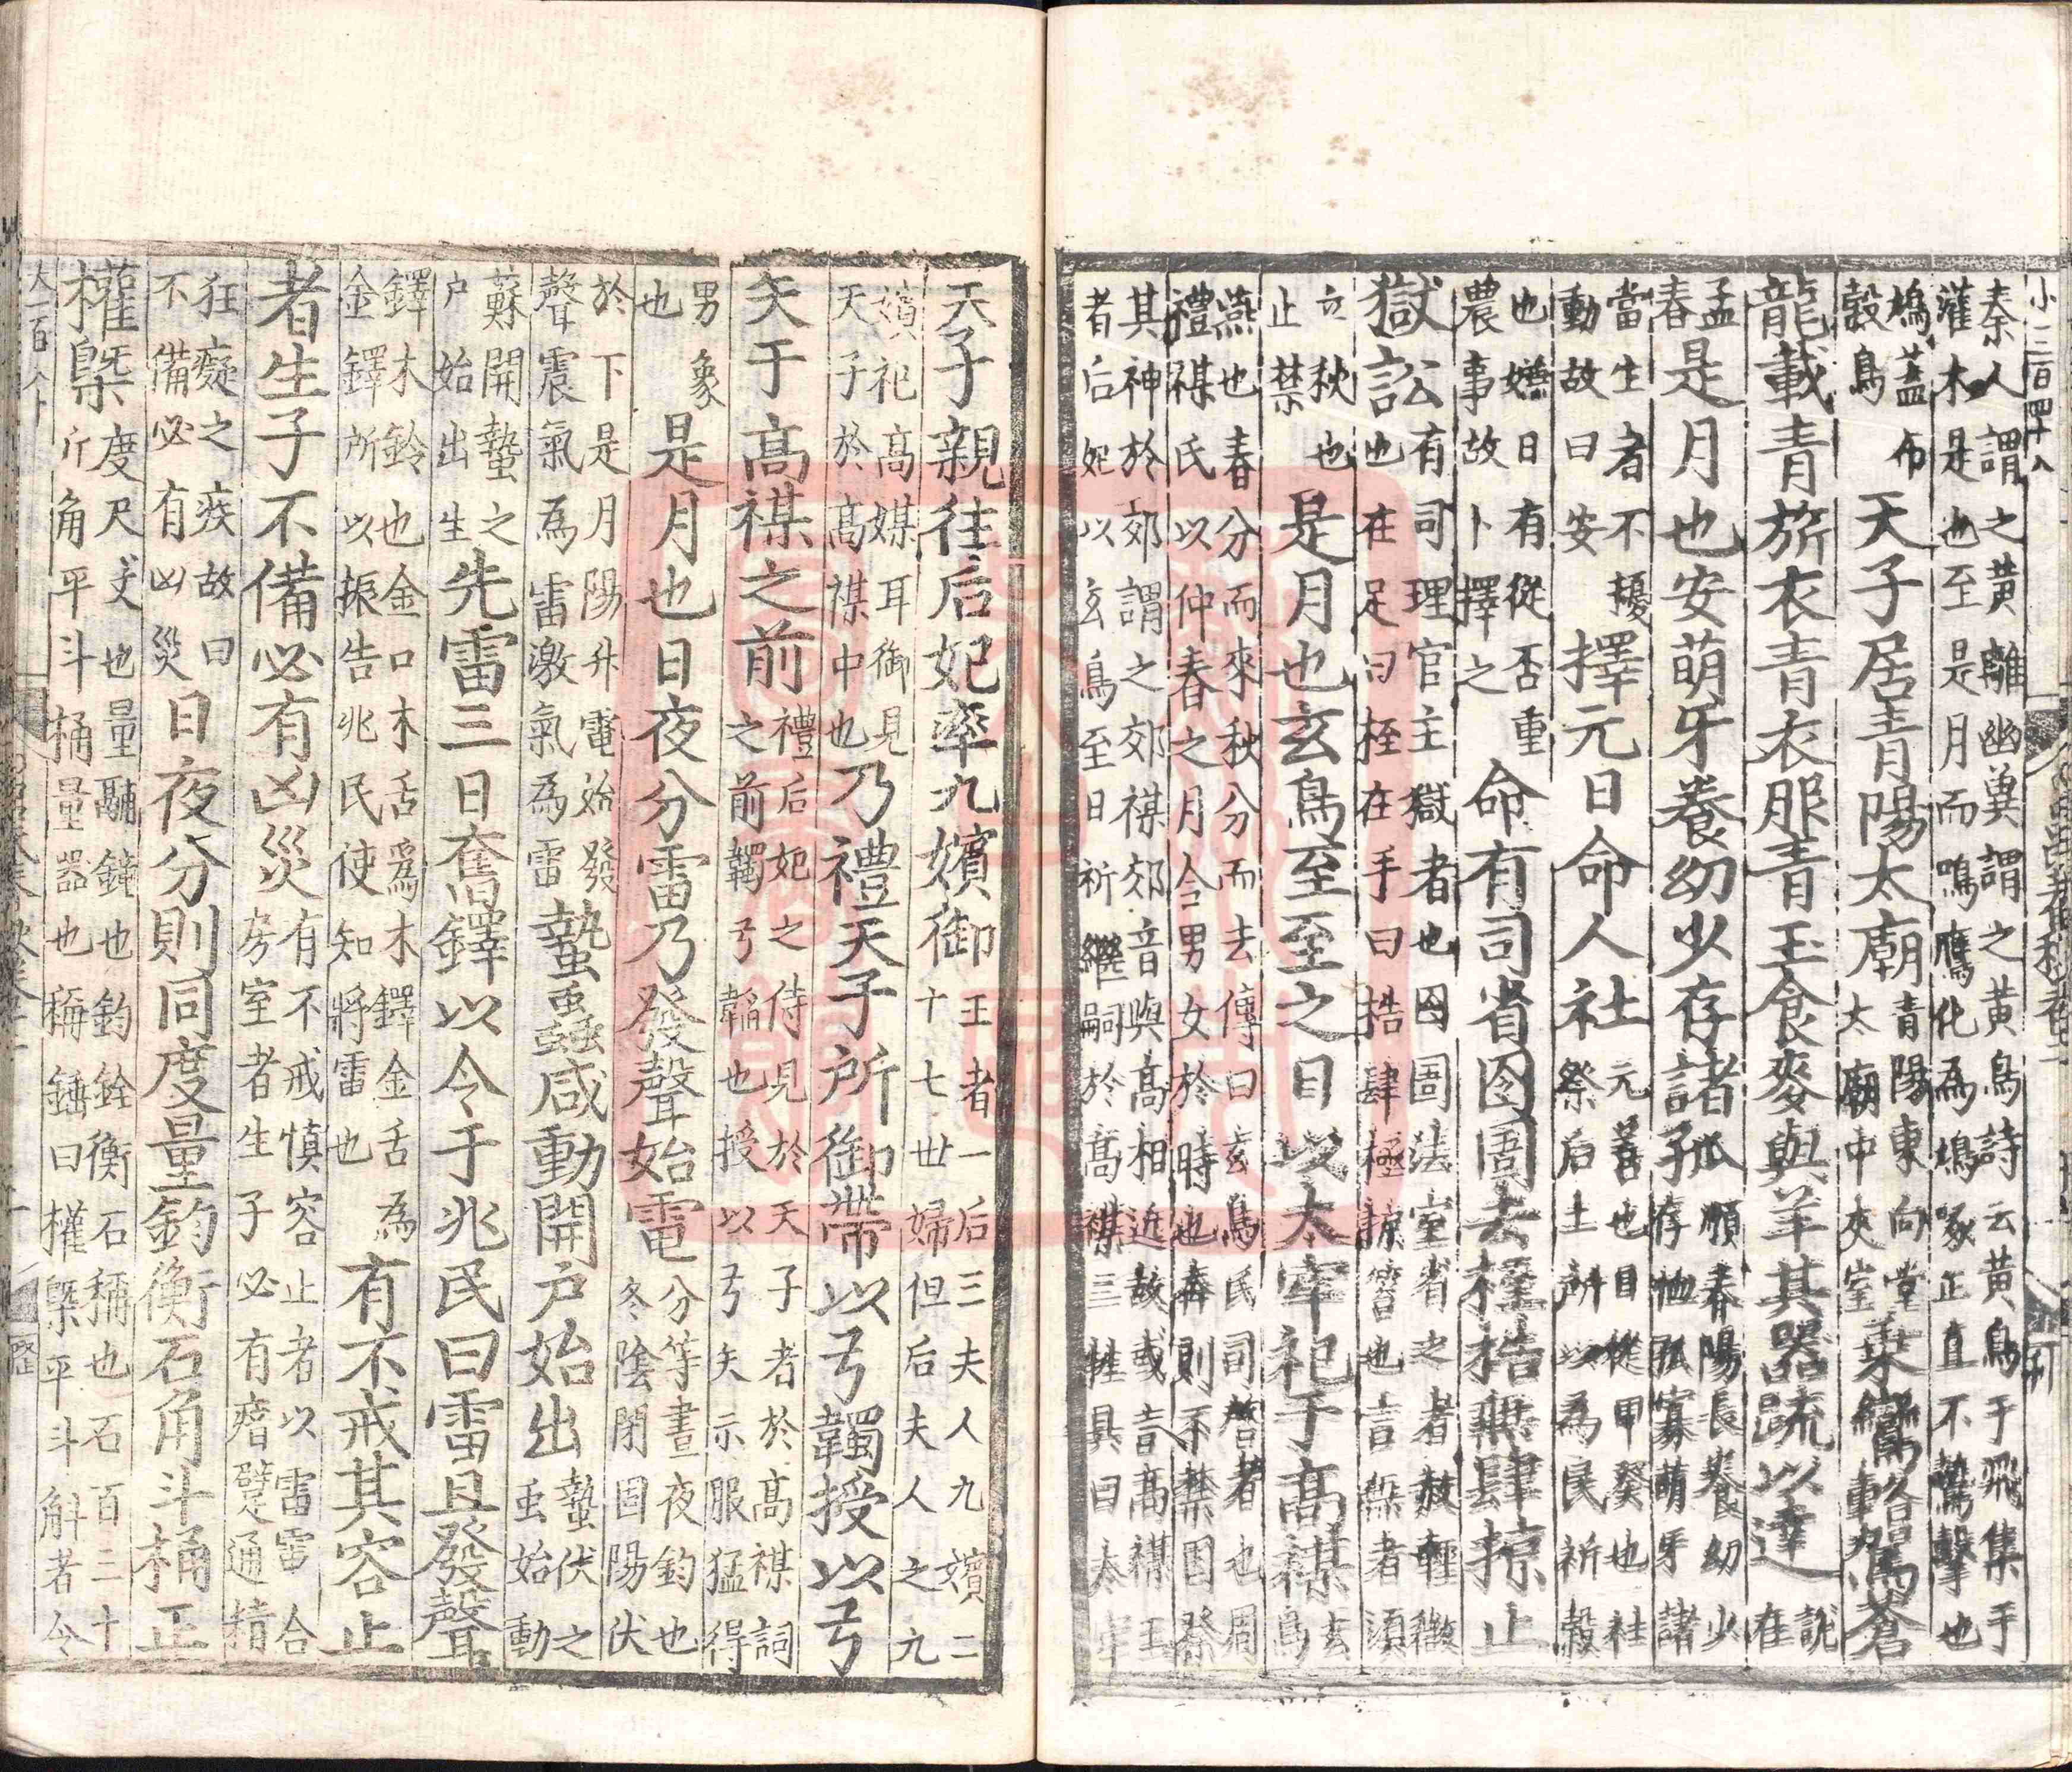 小三百四十八
秦人謂之黃離幽冀謂之黃鳥詩云黃鳥于飛集于
灌木是也至是月而鳴鷹化為鳩喙正直不鷙擊也
鳩蓋布
榖鳥
天子居青陽太廟
青陽東向堂
太廟中夾室
乘鸞輅
駕蒼
龍載青旂衣青衣服青玉食麥與羊其器疏以達
說
在
孟
春
是月也安萌牙養幼少存諸孤
順春陽長養幼少
存恤孤寡萌牙諸
當生者不擾
動故曰安安
擇元日命人社
元善也日從甲癸也社
祭后土所以為民祈穀
也嫌日有從否重
農事故卜擇之
命有司省囹圄去桎梏無肆掠止
獄訟
有司理官主獄者也囹圄法室省之者赦輕微
也在足曰桎在手曰梏肆極諒笞也言無者須
立秋也
止禁
是月也玄鳥至至之日以太牢祀于高禖
玄
鳥
燕也春分而來秋分而去傳曰玄鳥氏司啓者也周
禮禖氏以仲春之月合男女於時也奔則不禁因祭
其神於郊謂之郊禖郊音與高相近故或言高禖王
者后妃以玄鳥至日祈繼嗣於高禖三牲具曰太牢
天子親往后妃率九嬪御
王者一后三夫人九嬪二
十七世婦但后夫人之九
嬪祀高媒耳御見
天子於高禖中也
乃禮天子所御帶以弓韣授以弓
矢于高禖之前
禮后妃之侍見於天子者於高禖詞
之前韣弓韜也授以弓矢示服猛得
男象
也
是月也日夜分雷乃發聲始電
分等晝夜鈞也
冬陰閉固陽伏
於下是月陽升電始發
聲震氣為雷激氣為雷
蟄蟲咸動開戶始出
蟄伏之
蟲始動
蘇開蟄之
戶始出生
先雷三日奮鐸以令于兆民曰雷且發聲
鐸木鈴也金口木舌爲木鐸金舌為
金鐸所以振告兆民使知將雷也
有不戒其容止
者生子不備必有凶災
有不戒慎容止者以雷雷合
房室者生子必有瘖躄通精
狂癡之疾故曰
不備必有凶災
日夜分則同度量鈞衡石角斗桶正
權槩
度尺丈也量鬴鐘也鈞銓衡石稱也石百二十
斤角平斗桶量器也稱錘曰權槩平斗斛者令